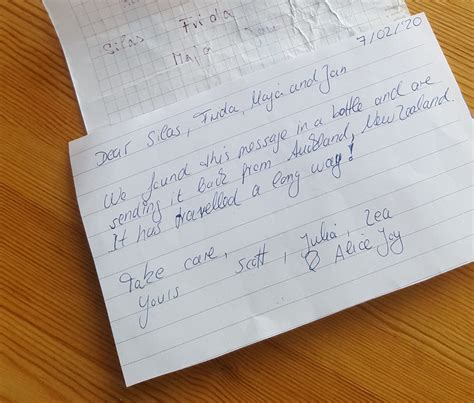 Frida
Silas
Maja
7/02/20
Dear Silas, Frida, Maja and Jan
We found this message in a bottle and are
sending it back from Auckland, New Zealand.
It has travelled a long way!
Take care,
Yours Scott, Julia, Zea
& Alice Joy